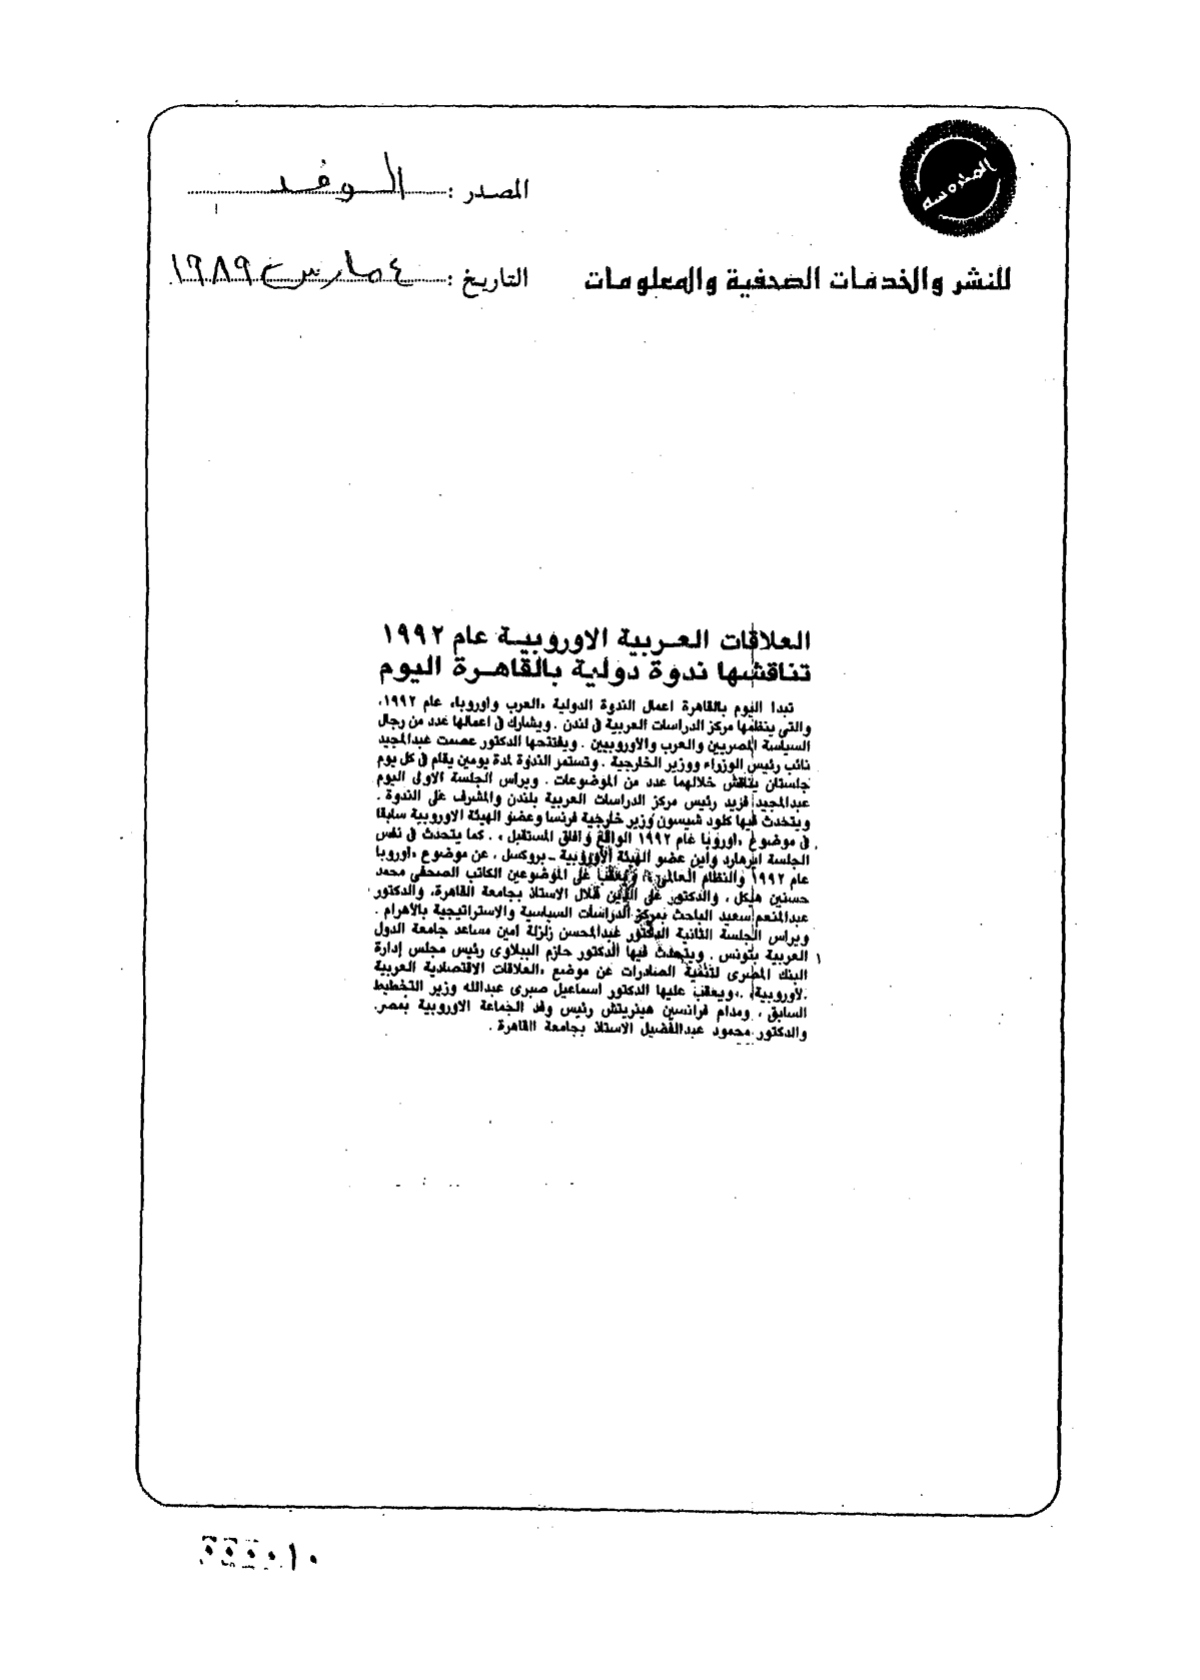 المحروسة
المصدر : الوفد
للنشر والخدمات الصحفية والمعلومات
التاريخ : ٤ مارس ١٩٨٩
العلاقات العربية الاوروبية عام ١٩٩٢
تناقشها ندوة دولية بالقاهرة اليوم
تبدا اليوم بالقاهرة اعمال الندوة الدولية «العرب واوروبا» عام ١٩٩٢،
والتى ينظمها مركز الدراسات العربية فى لندن . ويشارك فى اعمالها عدد من رجال
السياسة المصريين والعرب والاوروبيين . ويفتتحها الدكتور عصمت عبدالمجيد
نائب رئيس الوزراء ووزير الخارجية . وتستمر الندوة لمدة يومين يقام فى كل يوم
جلستان يناقش خلالهما عدد من الموضوعات . ويراس الجلسة الاولى اليوم
عبدالمجيد فريد رئيس مركز الدراسات العربية بلندن والمشرف على الندوة .
ويتحدث فيها كلود شيسون وزير خارجية فرنسا وعضو الهيئة الاوروبية سابقا
فى موضوع «اوروبا عام ١٩٩٢ الواقع وافاق المستقبل» . كما يتحدث فى نفس
الجلسة ايرهارد واين عضو الهيئة الاوروبية - بروكسل ، عن موضوع «اوروبا
عام ١٩٩٢ والنظام العالمى» ويعقب على الموضوعين الكاتب الصحفى محمد
حسنين هيكل ، والدكتور على الدين هلال الاستاذ بجامعة القاهرة، والدكتور
عبدالمنعم سعيد الباحث بمركز الدراسات السياسية والاستراتيجية بالاهرام .
ويراس الجلسة الثانية الدكتور عبدالمحسن زلزلة امين مساعد جامعة الدول
العربية بتونس . ويتحدث فيها الدكتور حازم الببلاوى رئيس مجلس إدارة
البنك المصرى لتنمية الصادرات عن موضع «العلاقات الاقتصادية العربية
لاوروبية» ،ويعقب عليها الدكتور اسماعيل صبرى عبدالله وزير التخطيط
السابق ، ومدام فرانسين هينريتش رئيس وفد الجماعة الاوروبية بمصر.
والدكتور محمود عبدالفضيل الاستاذ بجامعة القاهرة .